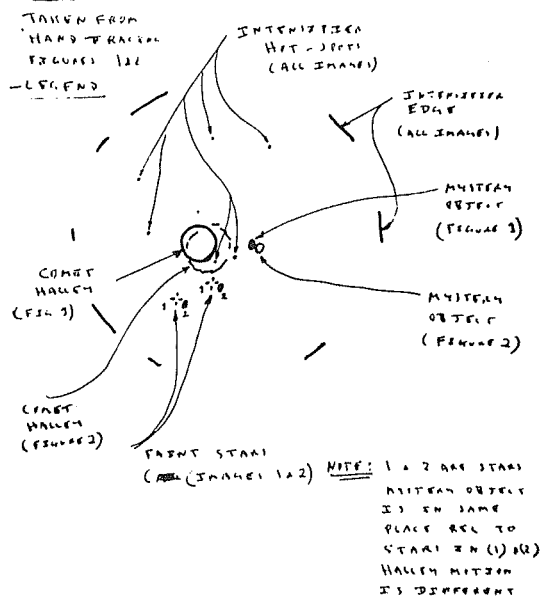 TAKEN FROM
HAND TRACING
FIGURES 1&2
-LEGEND
INTENSIFIER
HOT-SPOTS
(ALL IMAGES)
INTENSIFIER
EDGE
(ALL IMAGES)
MYSTERY
OBJECT
(FIGURE 1)
COMET
HALLEY
(FIG 1)
MYSTERY
OBJECT
(FIGURE 2)
1 2
1 2
COMET
HALLEY
(FIGURE 2)
FAINT STARS
(IMAGES 1&2)
NOTE: 1 & 2 ARE STARS
MYSTERY OBJECT
IS IN SAME
PLACE REL TO
STARS IN (1) &(2)
HALLEY MOTION
IS DIFFERENT